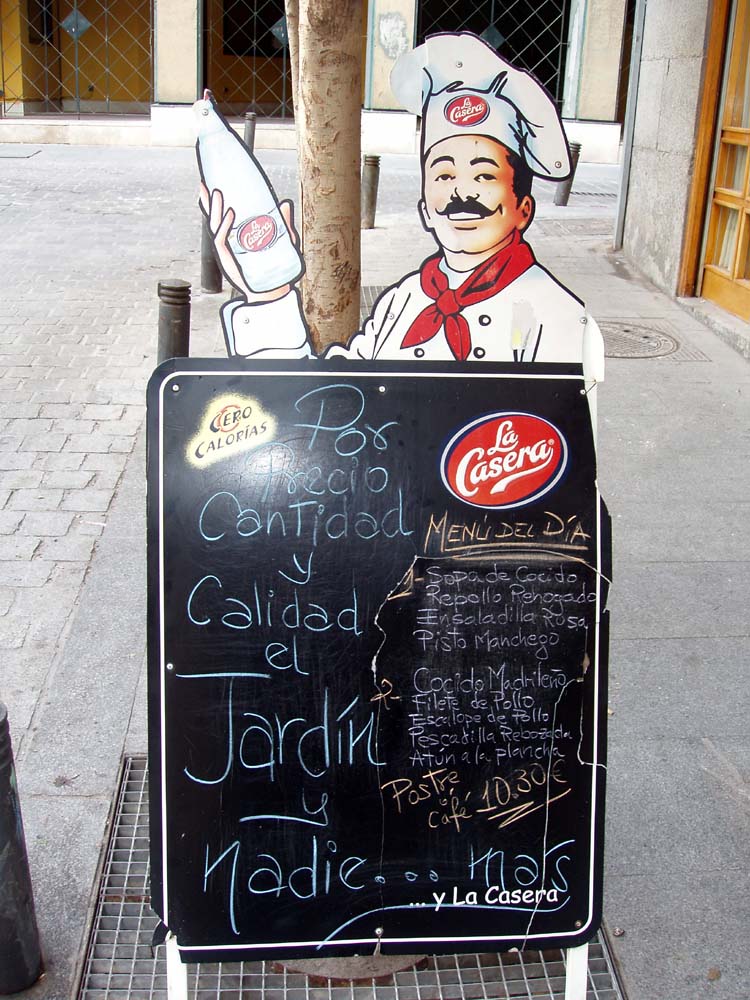 La
Casera
La
Casera
CERO
CALORÍAS
Por
Precio
Cantidad
y
Calidad
el
Jardín
y
nadie... más
La
Casera
MENÚ DEL DÍA
1- Sopa de Cocido
Repollo Rehogado
Ensaladilla Rosa
Pisto Manchego
2- Cocido Madrileño
Filete de Pollo
Escalope de Pollo
Pescadilla Rebozada
Atún a la plancha
Postre
ó
café 10.30€
... y La Casera